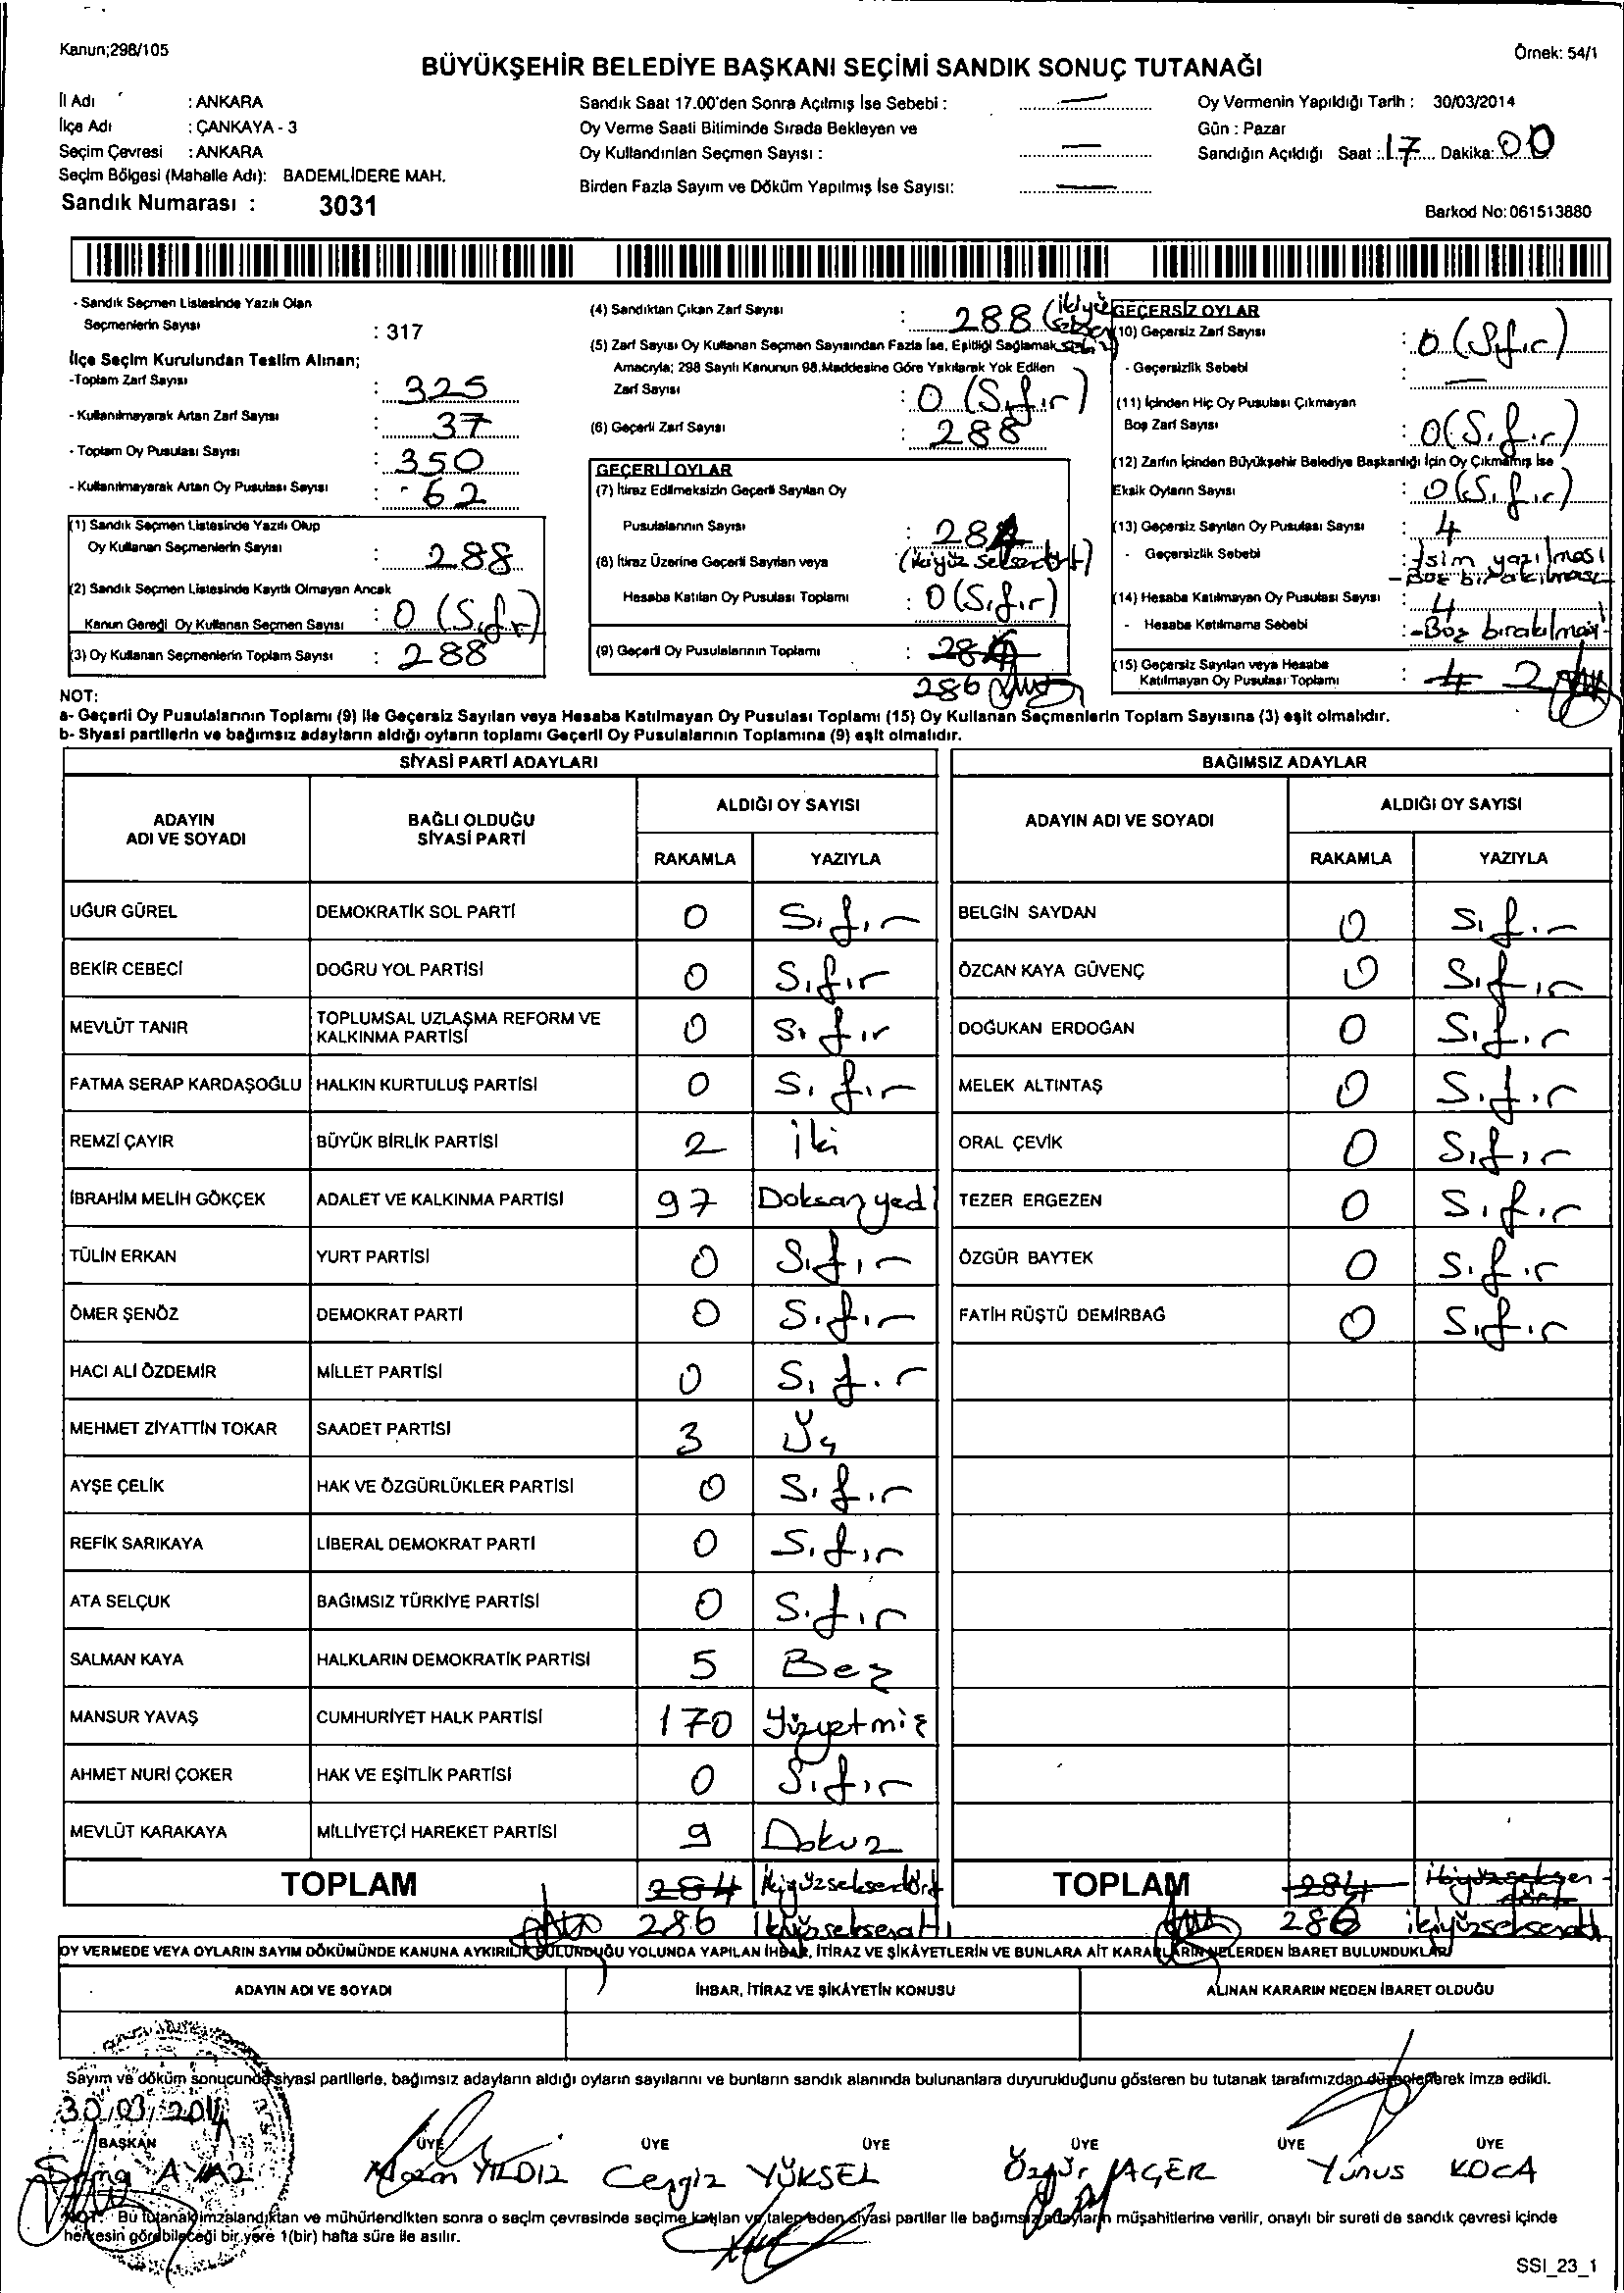 Kanun;298/105
Örnek: 54/1
BÜYÜKŞEHİR BELEDİYE BAŞKANI SEÇİMİ SANDIK SONUÇ TUTANAĞI
İl Adı : ANKARA
İlçe Adı : ÇANKAYA - 3
Seçim Çevresi : ANKARA
Seçim Bölgesi (Mahalle Adı): BADEMLİDERE MAH.
Sandık Numarası : 3031
Sandık Saat 17.00'den Sonra Açılmış İse Sebebi : —
Oy Verme Saati Bitiminde Sırada Bekleyen ve
Oy Kullandırılan Seçmen Sayısı : —
Birden Fazla Sayım ve Döküm Yapılmış İse Sayısı: —
Oy Vermenin Yapıldığı Tarih : 30/03/2014
Gün : Pazar
Sandığın Açıldığı Saat : 17 Dakika: 00
Barkod No: 061513880
- Sandık Seçmen Listesinde Yazılı Olan
Seçmenlerin Sayısı : 317
İlçe Seçim Kurulundan Teslim Alınan;
-Toplam Zarf Sayısı : 325
- Kullanılmayarak Artan Zarf Sayısı : 37
- Toplam Oy Pusulası Sayısı : 350
- Kullanılmayarak Artan Oy Pusulası Sayısı : 62
(1) Sandık Seçmen Listesinde Yazılı Olup
Oy Kullanan Seçmenlerin Sayısı : 288
(2) Sandık Seçmen Listesinde Kayıtlı Olmayan Ancak
Kanun Gereği Oy Kullanan Seçmen Sayısı : 0 (Sıfır)
(3) Oy Kullanan Seçmenlerin Toplam Sayısı : 288
(4) Sandıktan Çıkan Zarf Sayısı : 288
(5) Zarf Sayısı Oy Kullanan Seçmen Sayısından Fazla İse, Eşitliği Sağlamak
Amacıyla; 298 Sayılı Kanunun 98.Maddesine Göre Yakılarak Yok Edilen
Zarf Sayısı : 0 (Sıfır)
(6) Geçerli Zarf Sayısı : 288
GEÇERLİ OYLAR
(7) İtiraz Edilmeksizin Geçerli Sayılan Oy
Pusulalarının Sayısı : 284
(ikiyüz seksendört)
(8) İtiraz Üzerine Geçerli Sayılan veya
Hesaba Katılan Oy Pusulası Toplamı : 0 (Sıfır)
(9) Geçerli Oy Pusulalarının Toplamı : 284
286
GEÇERSİZ OYLAR
(10) Geçersiz Zarf Sayısı : 0 (Sıfır)
- Geçersizlik Sebebi : —
(11) İçinden Hiç Oy Pusulası Çıkmayan
Boş Zarf Sayısı : 0 (Sıfır)
(12) Zarfın İçinden Büyükşehir Belediye Başkanlığı İçin Oy Çıkmamış İse
Eksik Oyların Sayısı : 0 (Sıfır)
(13) Geçersiz Sayılan Oy Pusulası Sayısı : 4
- Geçersizlik Sebebi : -İsim yazılması
-Boş bırakılması
(14) Hesaba Katılmayan Oy Pusulası Sayısı : 4
- Hesaba Katılmama Sebebi : -Boş bırakılması
(15) Geçersiz Sayılan veya Hesaba
Katılmayan Oy Pusulası Toplamı : 4 2
NOT:
a- Geçerli Oy Pusulalarının Toplamı (9) ile Geçersiz Sayılan veya Hesaba Katılmayan Oy Pusulası Toplamı (15) Oy Kullanan Seçmenlerin Toplam Sayısına (3) eşit olmalıdır.
b- Siyasi partilerin ve bağımsız adayların aldığı oyların toplamı Geçerli Oy Pusulalarının Toplamına (9) eşit olmalıdır.
SİYASİ PARTİ ADAYLARI
ADAYIN ADI VE SOYADI
BAĞLI OLDUĞU SİYASİ PARTİ
ALDIĞI OY SAYISI
RAKAMLA YAZIYLA
UĞUR GÜREL DEMOKRATİK SOL PARTİ 0 Sıfır
BEKİR CEBECİ DOĞRU YOL PARTİSİ 0 Sıfır
MEVLÜT TANIR TOPLUMSAL UZLAŞMA REFORM VE KALKINMA PARTİSİ 0 Sıfır
FATMA SERAP KARDAŞOĞLU HALKIN KURTULUŞ PARTİSİ 0 Sıfır
REMZİ ÇAYIR BÜYÜK BİRLİK PARTİSİ 2 iki
İBRAHİM MELİH GÖKÇEK ADALET VE KALKINMA PARTİSİ 97 Doksanyedi
TÜLİN ERKAN YURT PARTİSİ 0 Sıfır
ÖMER ŞENÖZ DEMOKRAT PARTİ 0 Sıfır
HACI ALİ ÖZDEMİR MİLLET PARTİSİ 0 Sıfır
MEHMET ZİYATTİN TOKAR SAADET PARTİSİ 3 Üç
AYŞE ÇELİK HAK VE ÖZGÜRLÜKLER PARTİSİ 0 Sıfır
REFİK SARIKAYA LİBERAL DEMOKRAT PARTİ 0 Sıfır
ATA SELÇUK BAĞIMSIZ TÜRKİYE PARTİSİ 0 Sıfır
SALMAN KAYA HALKLARIN DEMOKRATİK PARTİSİ 5 Beş
MANSUR YAVAŞ CUMHURİYET HALK PARTİSİ 170 Yüzyetmiş
AHMET NURİ ÇOKER HAK VE EŞİTLİK PARTİSİ 0 Sıfır
MEVLÜT KARAKAYA MİLLİYETÇİ HAREKET PARTİSİ 9 Dokuz
TOPLAM 284 ikiyüzseksendört
286 ikiyüzseksenaltı
BAĞIMSIZ ADAYLAR
ADAYIN ADI VE SOYADI
ALDIĞI OY SAYISI
RAKAMLA YAZIYLA
BELGİN SAYDAN 0 Sıfır
ÖZCAN KAYA GÜVENÇ 0 Sıfır
DOĞUKAN ERDOĞAN 0 Sıfır
MELEK ALTINTAŞ 0 Sıfır
ORAL ÇEVİK 0 Sıfır
TEZER ERGEZEN 0 Sıfır
ÖZGÜR BAYTEK 0 Sıfır
FATİH RÜŞTÜ DEMİRBAĞ 0 Sıfır
TOPLAM 284 ikiyüzseksendört
286 ikiyüzseksenaltı
OY VERMEDE VEYA OYLARIN SAYIM DÖKÜMÜNDE KANUNA AYKIRILIK BULUNDUĞU YOLUNDA YAPILAN İHBAR, İTİRAZ VE ŞİKÂYETLERİN VE BUNLARA AİT KARARLARIN NELERDEN İBARET BULUNDUKLARI
ADAYIN ADI VE SOYADI
İHBAR, İTİRAZ VE ŞİKÂYETİN KONUSU
ALINAN KARARIN NEDEN İBARET OLDUĞU
Sayım ve döküm sonucunda siyasi partilerle, bağımsız adayların aldığı oyların sayılarını ve bunların sandık alanında bulunanlara duyurulduğunu gösteren bu tutanak tarafımızdan düzenlenerek imza edildi.
30/03/2014
BAŞKAN ÜYE ÜYE ÜYE ÜYE ÜYE ÜYE
AYAZ YILDIZ Cengiz YÜKSEL Özgür Yunus KOCA
NOT: Bu tutanak imzalandıktan ve mühürlendikten sonra o seçim çevresinde seçime katılan ve talep eden siyasi partiler ile bağımsız adayların müşahitlerine verilir, onaylı bir sureti de sandık çevresi içinde
herkesin görebileceği bir yere 1(bir) hafta süre ile asılır.
SSI_23_1